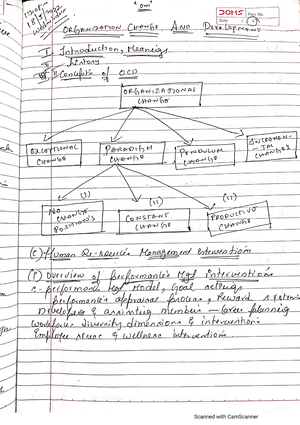 "Om"
DOMS Page No.
Date / /
ORGANIZATION CHANGE AND Development
I Introduction, Meaning
II history
III Concept's of OCD
ORGANIZATIONAL CHANGE
EXCEPTIONAL CHANGE
PARADIGM CHANGE
PENDULUM CHANGE
CHANGE'S
(I) (II) (III)
NO CHANGE POSITION'S
CONSTANT CHANGE
PRODUCTIVE CHANGE
(E) Human Re-source's Management Intervention
(F) Overview of performance's Mgt interventions
performance Mgt Model, Goal settings
performance's appraisal process, Reward system
Develop'g & assisting members - Career planning
Workforce diversity dimensions & interventions
Employee stress & wellness Interventions
Scanned with CamScanner